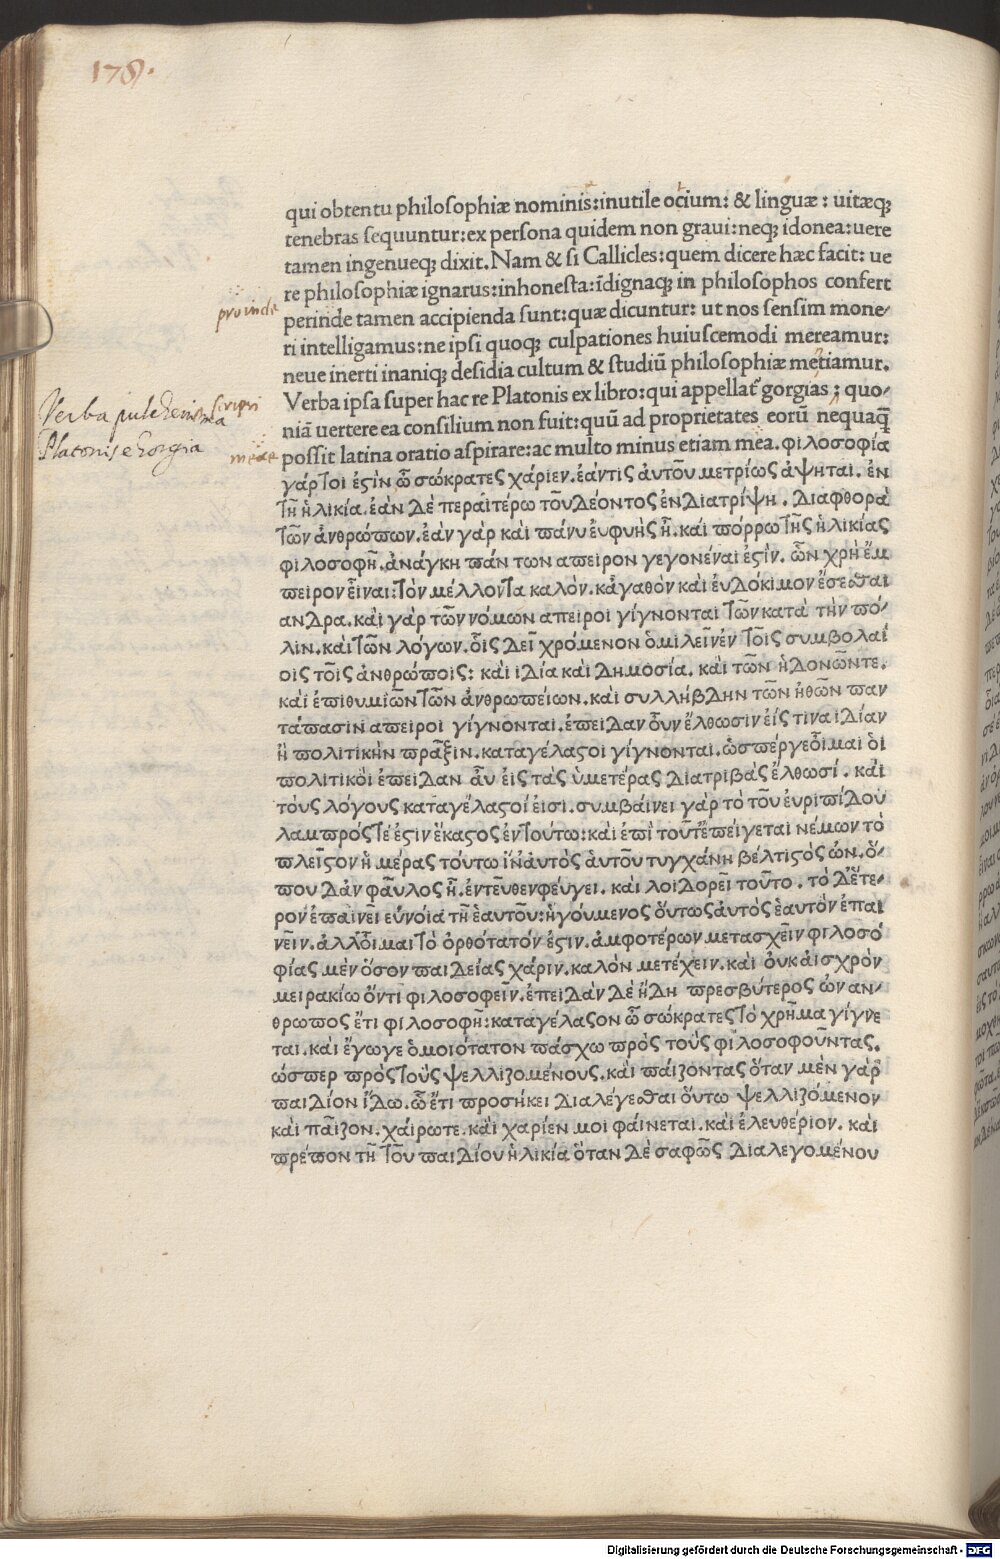 178.
qui obtentu philosophiæ nominis: inutile ocium: & linguæ: uitæq;
tenebras sequuntur: ex persona quidem non graui: neq; idonea: uere
tamen ingenueq; dixit. Nam & si Callicles: quem dicere hæc facit: ue
re philosophiæ ignarus: inhonesta: īdignaq; in philosophos confert
prouinde
perinde tamen accipienda sunt: quæ dicuntur: ut nos sensim mone/
ri intelligamus: ne ipsi quoq; culpationes huiuscemodi mereamur:
neue inerti inaniq; desidia cultum & studiū philosophiæ metiamur.
Verba pulcherrima
Platonis e Gorgia
scripsi
Verba ipsa super hac re Platonis ex libro: qui appellat gorgias; quo/
niā uertere ea consilium non fuit: quū ad proprietates eorū nequaq̄
meae
possit latina oratio aspirare: ac multo minus etiam mea. φιλοσοφία
γάρ τοι ἐςὶν ὦ σώκρατες χάριεν. ἐάντις ἀυτοῦ μετρίως ἁψηται. ἐν
τῆ ἡλικία. ἐὰν δὲ περαιτέρω τοῦ δέοντος ἐνδιατρίψη. διαφθορὰ
τῶν ἀνθρώπων. ἐὰν γὰρ καὶ πάνυ ἐυφυὴς ἦ. καὶ πόρρω τῆς ἡλικίας
φιλοσοφῆ. ἀνάγκη πάν των απειρον γεγονέναι ἐςὶν. ὧν χρὴ ἔμ
πειρον εἶναι: τὸν μέλλοντα καλὸν. κἀγαθὸν καὶ ἐυδόκιμον ἔσεσθαι
ανδρα. καὶ γὰρ τῶν νόμων απειροι γίγνονται τῶν κατὰ τὴν πό/
λιν. καὶ τῶν λόγων. οἷς δεῖ χρόμενον ὁμιλεῖν ἐν τοῖς συμβολαί
οις τοῖς ἀνθρώποις: καὶ ιδία καὶ δημοσία. καὶ τῶν ἡδονῶντε.
καὶ ἐπιθυμιῶν τῶν ἀνθρωπείων. καὶ συλλήβδην τῶν ἠθῶν παν
τάπασιν απειροι γίγνονται. ἐπειδαν οὖν ἔλθωσιν ἐίς τινα ιδίαν
ἢ πολιτικὴν πρᾶξιν. καταγέλαςοι γίγνονται. ὡσπέργε οἶμαι ὁι
πολιτικοὶ ἐπειδαν ἀυ ἐις τὰς ὑμετέρας διατριβὰς ἔλθωσί. καὶ
τοὺς λόγους καταγέλαςοί ἐισι. συμβάινει γὰρ τὸ τοῦ ἐυριπίδου
λαμπρός τέ ἐςιν ἕκαςος ἐν τούτω: καὶ ἐπὶ τοῦτ ἐπείγεται νέμων τὸ
πλεῖςον ἡμέρας τόυτω ἵν ἀυτὸς ἁυτοῦ τυγχάνη βέλτιςὸς ὢν. ὅ/
που δ ἀν φᾶυλος ἦ. ἐντεῦθεν φεύγει. καὶ λοιδορεῖ τοῦτο. τὸ δ ἕτε/
ρον ἐπαινεῖ ευνοία τῆ ἑαυτοῦ: ἡγούμενος ὅυτως ἀυτὸς ἑαυτὸν ἐπαι
νεῖν. ἀλλ οἶμαι τὸ ὀρθότατόν ἐςιν. ἀμφοτέρων μετασχεῖν φιλοσο
φίας μὲν ὅσον παιδείας χάριν. καλὸν μετέχειν. καὶ ὀυκ ἀισχρὸν
μειρακίω ὄντι φιλοσοφεῖν. ἐπειδὰν δὲ ἤδη πρεσβύτερος ὢν αν/
θρωπος ἔτι φιλοσοφῆ: καταγέλαςον ὦ σώκρατες τὸ χρῆμα γίγνε
ται. καὶ ἔγωγε ὁμοιότατον πάσχω πρὸς τοὺς φιλοσοφοῦντας.
ὡσπερ πρὸς τοὺς ψελλιζομένους. καὶ πάιζοντας ὅταν μὲν γὰρ
παιδίον ἴδω. ὧ ἔτι προσήκει διαλέγεσθαι ὅυτω ψελλιζόμενον
καὶ πᾶιζον. χάιρωτε. καὶ χαρίεν μοι φάινεται. καὶ ἐλευθέριον. καὶ
πρέπον τῆ τοῦ παιδίου ἡλικία ὅταν δὲ σαφῶς διαλεγομένου
Digitalisierung gefördert durch die Deutsche Forschungsgemeinschaft - DFG